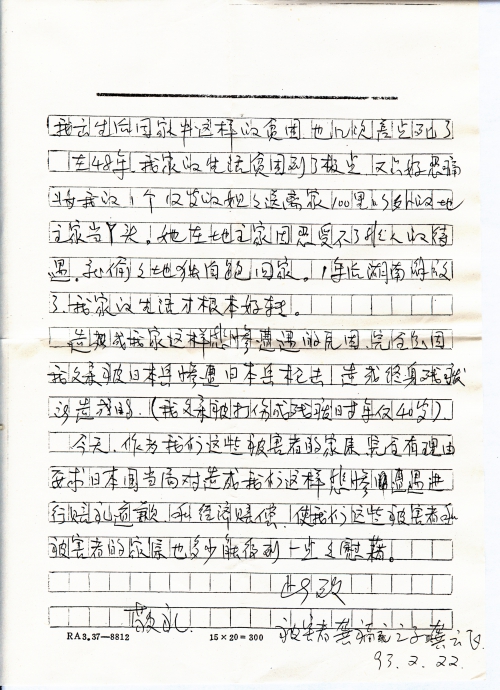 我出生后因家中这样的贫困，也几次差点死了
在48年，我家的生活贫困到了极点，又只好忍痛
将我的1个仅发的姐送离家100里以外的地
主家当丫头！她在地主家因忍受不了非人的待
遇，就偷偷地独自跑回家。1年后湖南解放
了，我家的生活才根本好转。
造成我家这样悲惨遭遇的原因，完全是因
我父亲被日本兵惨遭日本兵枪击，造成终身残疾
所造成的。（我父亲被打伤成残疾时年仅40岁）。
今天，作为我们这些被害者的家属完全有理由
要求日本国当局对造成我们这样悲惨的遭遇进
行赔礼道歉，和经济赔偿，使我们这些被害者和
被害者的家属也多少能得到一些之慰藉。
此致
敬礼
被害者龚 之子龚云飞
93.2.22.
RA3.37—8812 15×20=300